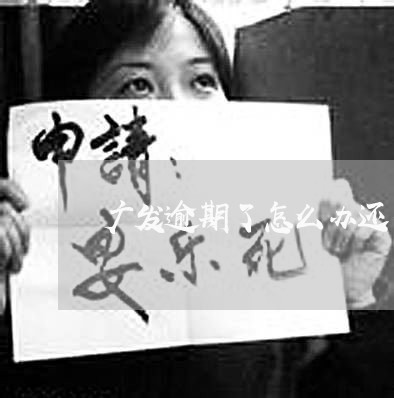 申請：
广发逾期了怎么办还
安乐死